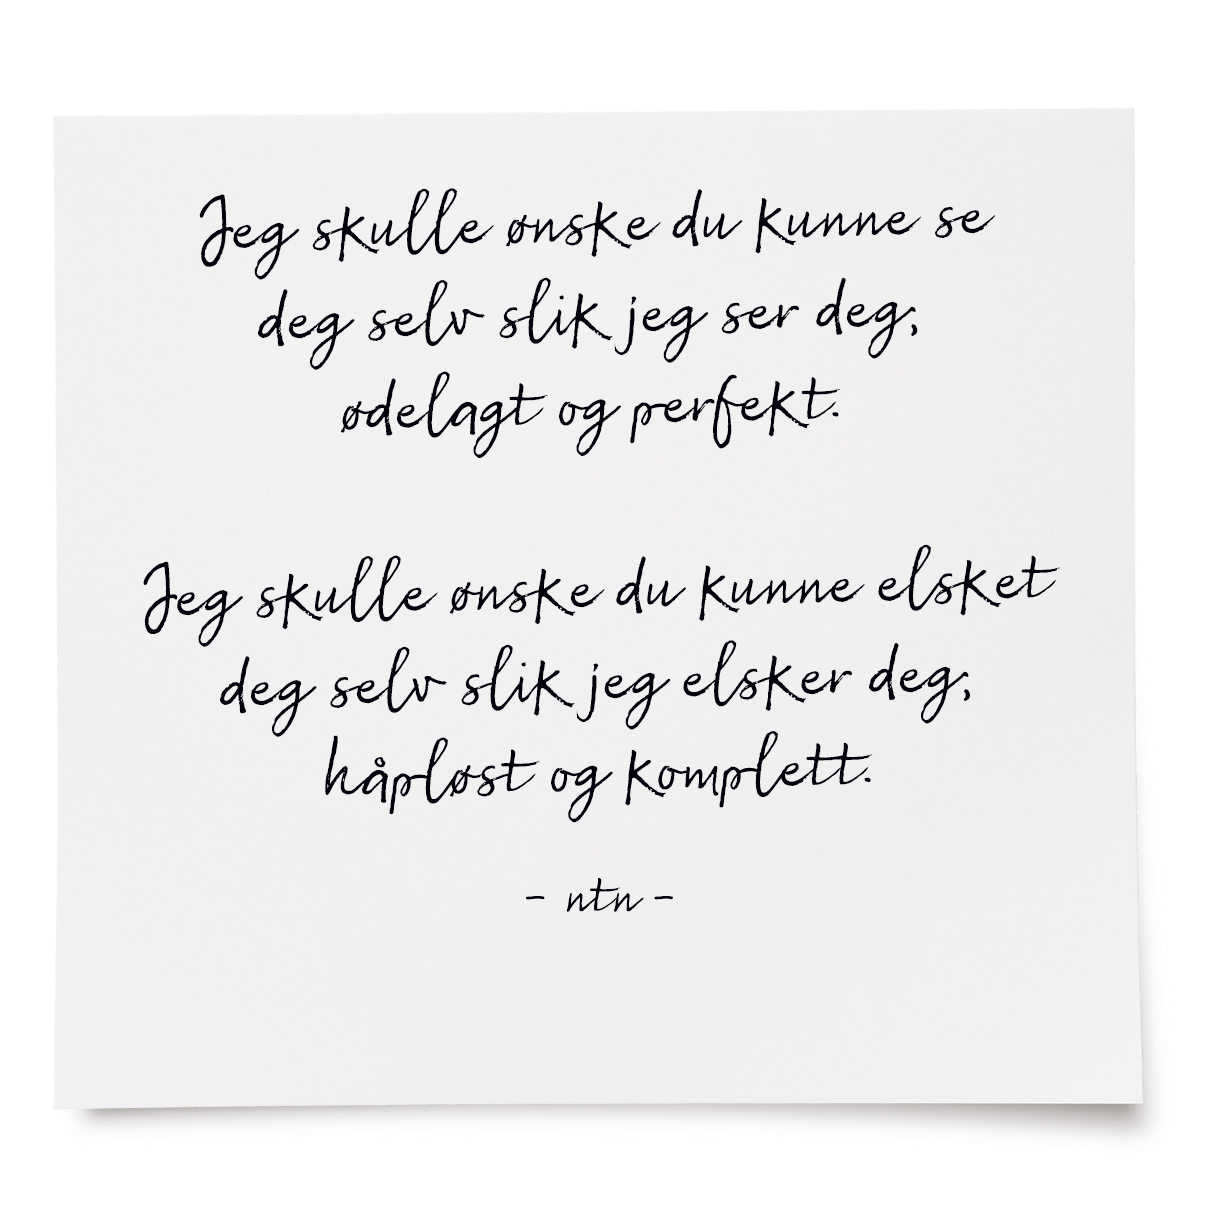 Jeg skulle ønske du kunne se
deg selv slik jeg ser deg;
ødelagt og perfekt.
Jeg skulle ønske du kunne elsket
deg selv slik jeg elsker deg;
håpløst og komplett.
- ntn -